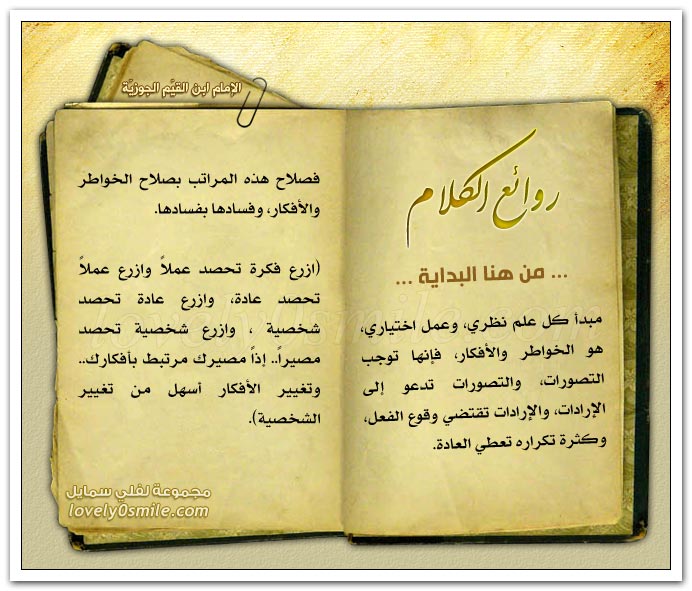 الإمام ابن القيَّم الجوزيَّة
روائع الكلام
... من هنا البداية ...
مبدأ كل علم نظري، وعمل اختياري،
هو الخواطر والأفكار، فإنها توجب
التصورات، والتصورات تدعو إلى
الإرادات، والإرادات تقتضي وقوع الفعل،
وكثرة تكراره تعطي العادة.
فصلاح هذه المراتب بصلاح الخواطر
والأفكار، وفسادها بفسادها.
(ازرع فكرة تحصد عملاً وازرع عملاً
تحصد عادة، وازرع عادة تحصد
شخصية ، وازرع شخصية تحصد
مصيراً.. إذاً مصيرك مرتبط بأفكارك..
وتغيير الأفكار أسهل من تغيير
الشخصية).
lovely0smile.com
مجموعة لفلي سمايل
lovely0smile.com